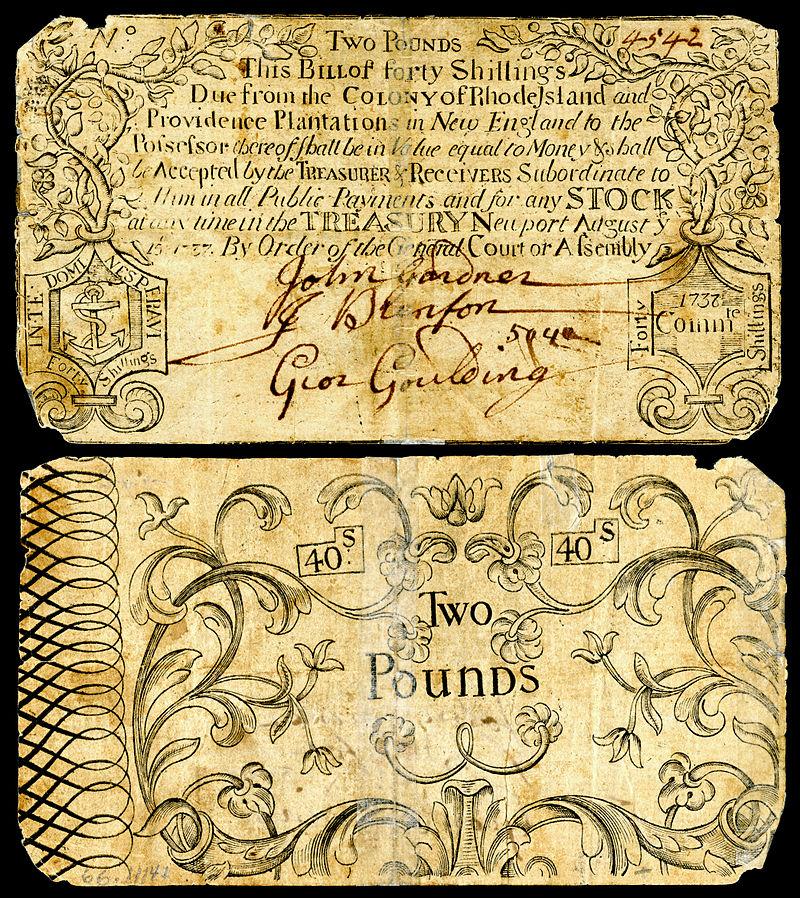 No
Two Pounds
4542
This Bill of forty Shillings
Due from the Colony of Rhode Island and
Providence Plantations in New England to the
Possessor thereof shall be in Value equal to Money & shall
be Accepted by the Treasurer & Receivers Subordinate to
Him in all Public Payments and for any STOCK
at any time in the TREASURY Newport August ye
By Order of the General Court or Assembly
IN TE DOMINE SPERAVI
Forty Shillings
John Gardner
Geor Goulding
Forty
1737
Commte
Shillings
40s
40s
Two
Pounds